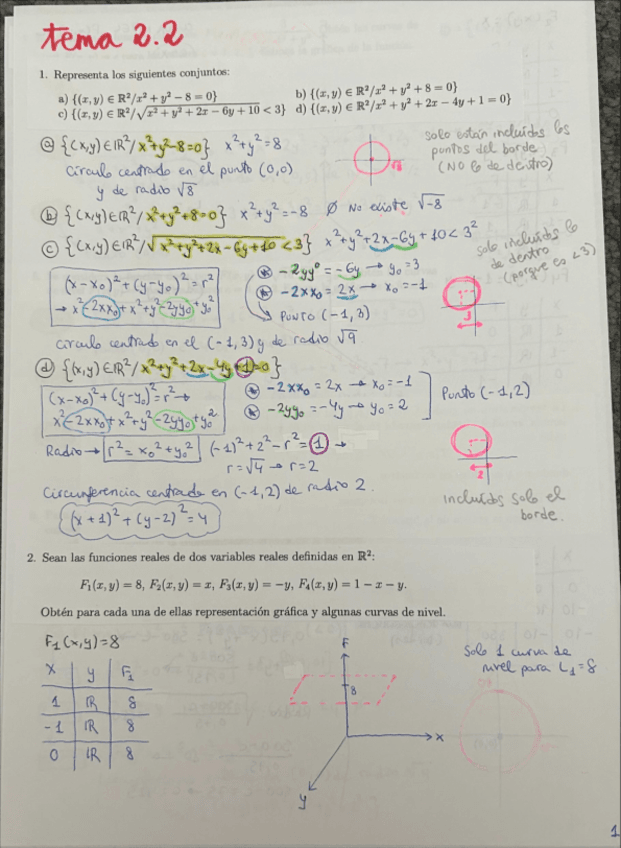 tema 2.2
1. Representa los siguientes conjuntos:
a) {(x, y) ∈ ℝ²/x² + y² − 8 = 0} b) {(x, y) ∈ ℝ²/x² + y² + 8 = 0}
c) {(x, y) ∈ ℝ²/√(x² + y² + 2x − 6y + 10) < 3} d) {(x, y) ∈ ℝ²/x² + y² + 2x − 4y + 1 = 0}
ⓐ {(x,y) ∈ ℝ²/ x²+y²-8=0} x²+y²=8
Círculo centrado en el punto (0,0)
y de radio √8
√8
solo están incluidos los
puntos del borde
(NO lo de dentro)
ⓑ {(x,y) ∈ ℝ²/ x²+y²+8=0} x²+y²=-8 Ø No existe √-8
ⓒ {(x,y) ∈ ℝ²/ √(x²+y²+2x-6y+10) < 3} x²+y²+2x-6y+10 < 3²
solo incluidos lo
de dentro
(porque es <3)
(x-x₀)²+(y-y₀)²=r²
→ x²-2xx₀+x²+y²-2yy₀+y₀²
* -2yy⁰=-6y → y₀=3
* -2xx₀=2x → x₀=-1
↳ Punto (-1,3)
3
círculo centrado en el (-1,3) y de radio √9
ⓓ {(x,y) ∈ ℝ²/ x²+y²+2x-4y+1=0}
(x-x₀)²+(y-y₀)²=r² →
x²-2xx₀+x²+y²-2yy₀+y₀²
* -2xx₀=2x → x₀=-1
* -2yy₀=-4y → y₀=2
Punto (-1,2)
Radio → r²=x₀²+y₀² (-1)²+2²-r²=1 →
r=√4 → r=2
2
Circunferencia centrada en (-1,2) de radio 2.
(x+1)²+(y-2)²=4
incluidos solo el
borde.
2. Sean las funciones reales de dos variables reales definidas en ℝ²:
F₁(x, y) = 8, F₂(x, y) = x, F₃(x, y) = −y, F₄(x, y) = 1 − x − y.
Obtén para cada una de ellas representación gráfica y algunas curvas de nivel.
F₁(x,y)=8
x y F₁
1 ℝ 8
-1 ℝ 8
0 ℝ 8
F
8
x
y
Solo 1 curva de
nivel para L₁=8
1